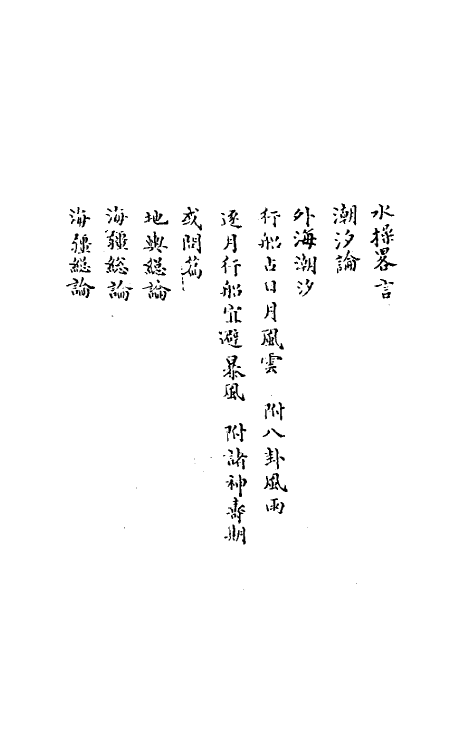 水操畧言
潮汐論
外海潮汐
行船占日月風雲　附八卦風雨
逐月行船宜避暴風　附諸神壽期
或問篇
地輿総論
海疆総論
海疆総論